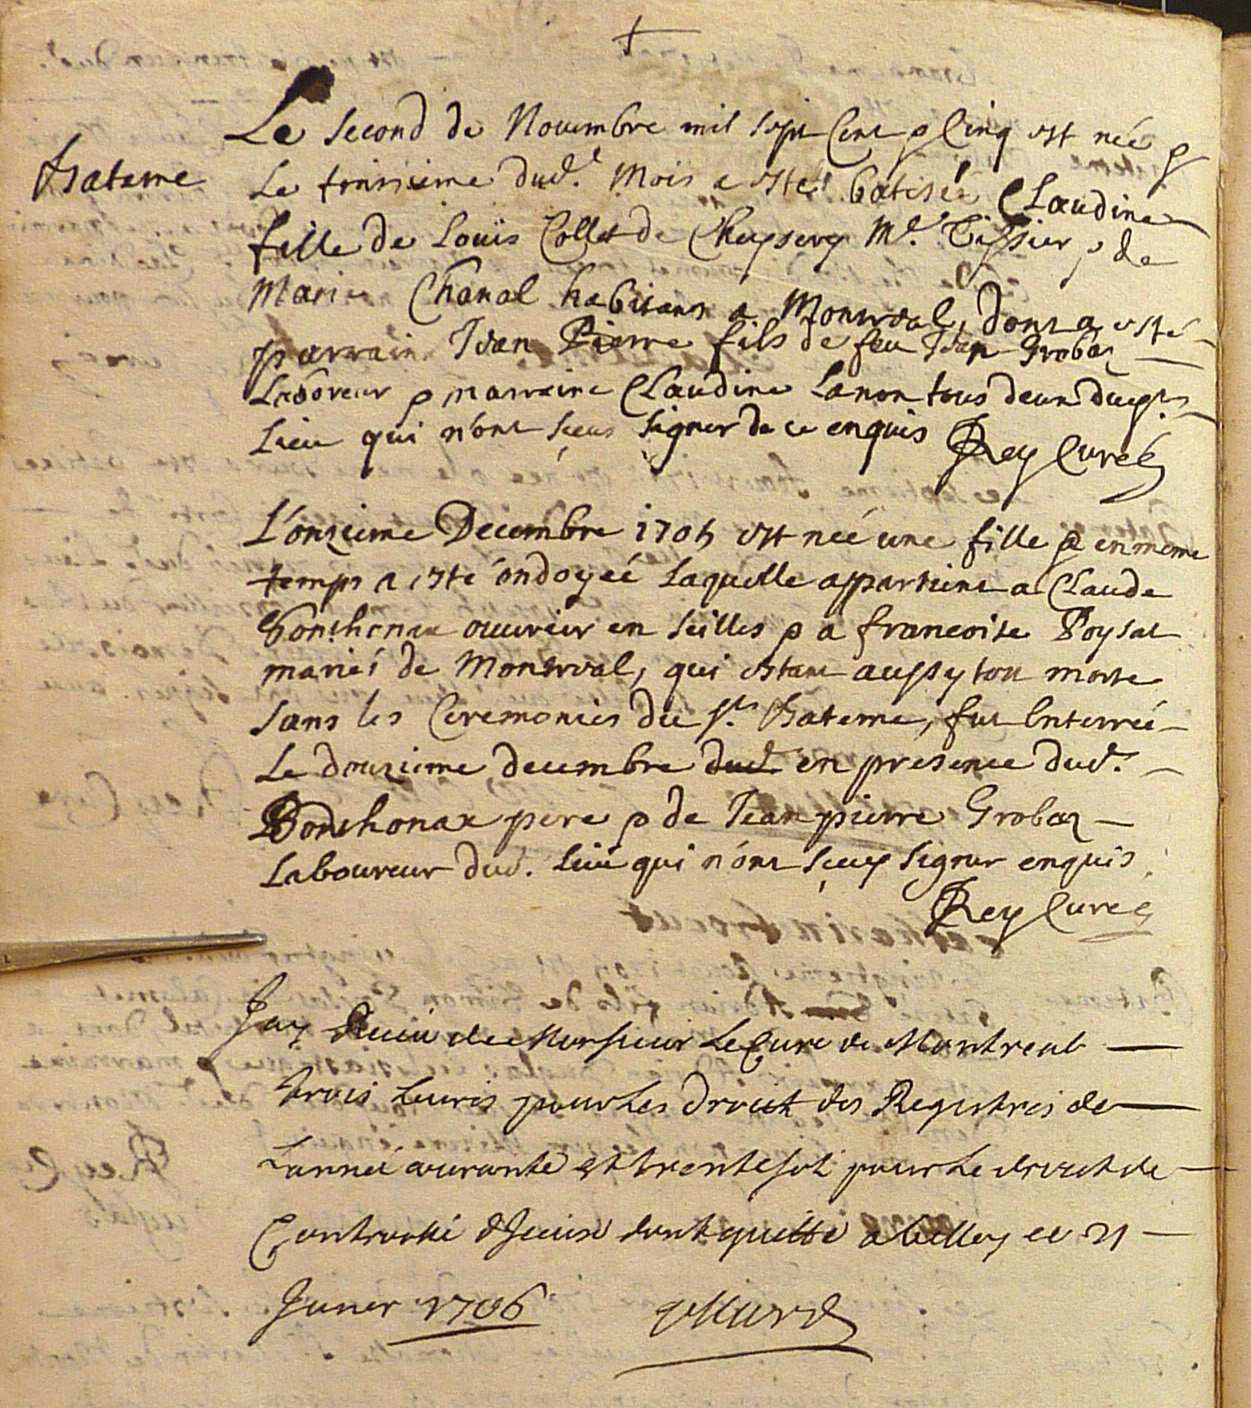 Bateme
Le second de Novembre mil sept Cent & Cinq est née &
Le troisieme dud. Mois a esté batisée Claudine
fille de Louïs Collet de Cheysery Me. Tissier & de
Marie Chanal habitans a Montreal, dont a esté
parrain Jean Pierre fils de feu Jean Grobaz
Laboreur & marraine Claudine Lanon tous deux dud.
Lieu qui n'ont sçeus signer de ce enquis Rey Curé
L'onzieme Decembre 1705 est neé une fille & en meme
temps a esté ondoyeé Laquelle appartient a Claude
Bonthonax ouvrier en seilles & a francoise Poysat
mariés de Montreal, qui estant aussytost morte
sans les Ceremonies du st. Bateme, fut Enterreé
Le douzieme decembre dud en presence dud.
Bonthonax pere & de Jean pierre Grobaz
Laboureur dud. Lieu qui n'ont sçeus signer enquis
Rey Curé
Jay Receu de Monsieur Le Cure de Montreal
trois Livres pour Les droict des Registres de
Lanneé courante et trente sols pour Le droict de
Controolle dont quitte a belley ce 21
Janvier 1706